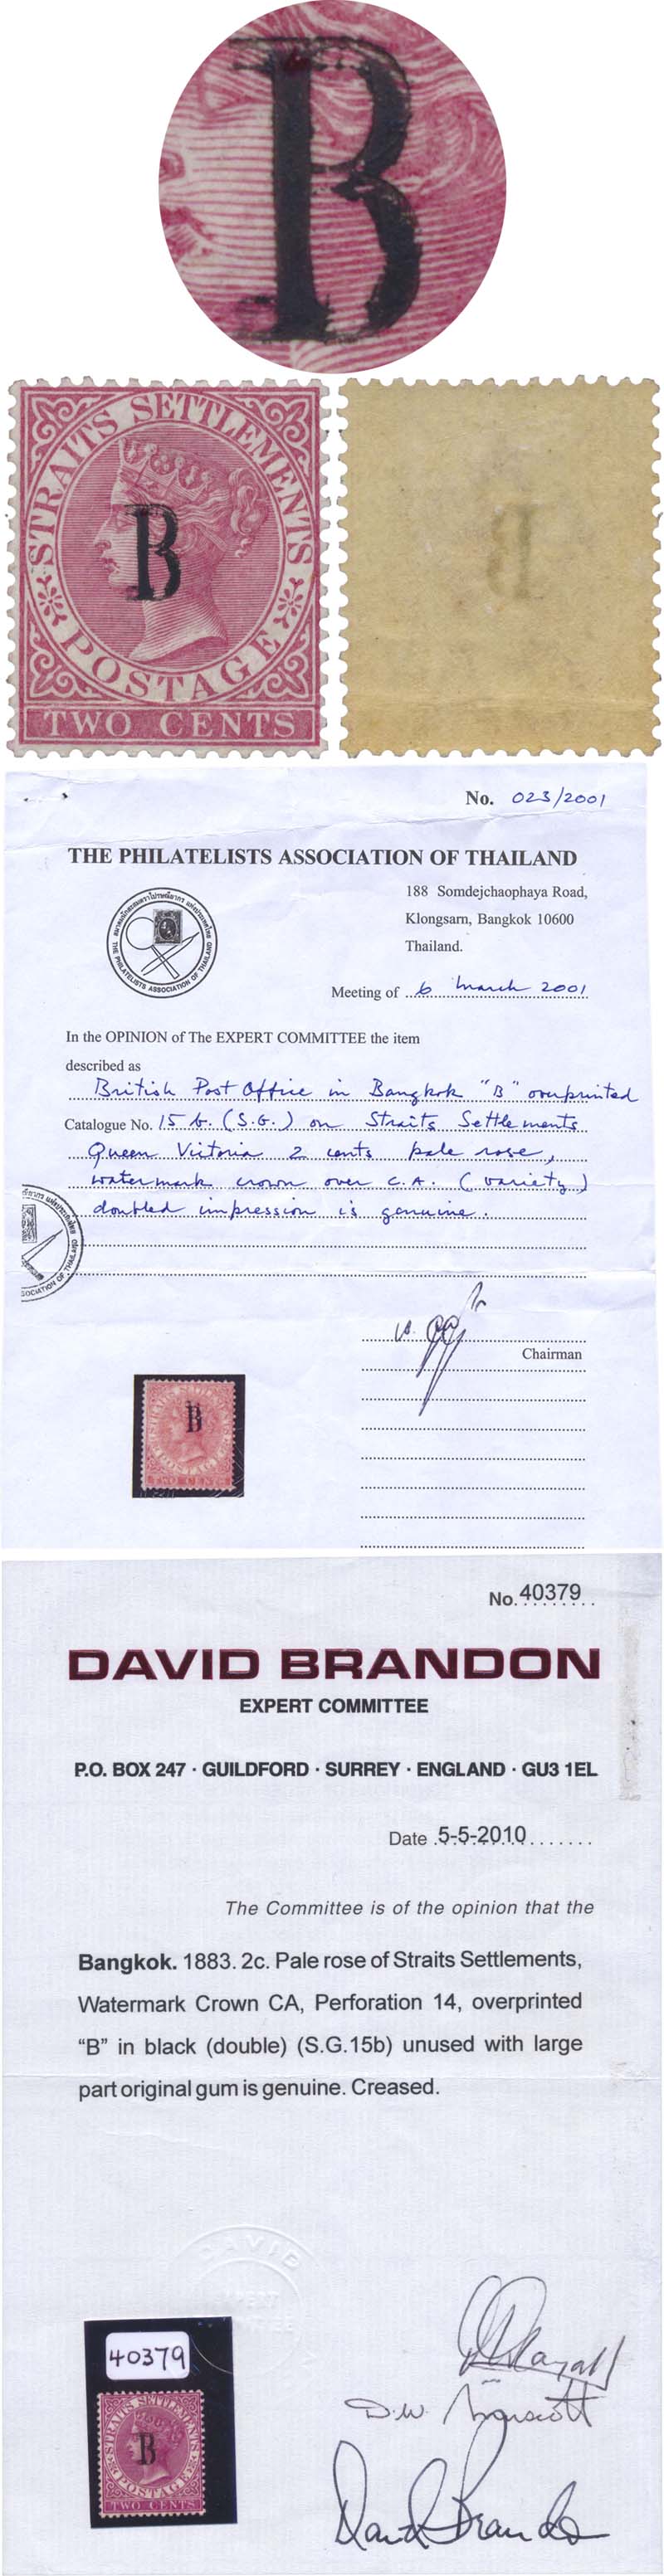 B
STRAITS SETTLEMENTS
B
POSTAGE
TWO CENTS
No. 023/2001
THE PHILATELISTS ASSOCIATION OF THAILAND
188 Somdejchaophaya Road,
Klongsarn, Bangkok 10600
Thailand.
THE PHILATELISTS ASSOCIATION OF THAILAND
Meeting of 6 March 2001
In the OPINION of The EXPERT COMMITTEE the item
described as
British Post Office in Bangkok "B" overprinted
Catalogue No. 15 b. (S.G.) on Straits Settlements
Queen Victoria 2 cents pale rose,
watermark crown over C.A. (variety)
doubled impression is genuine.
SOCIATION OF THAILAND
Chairman
B
POSTAGE
TWO CENTS
No. 40379
DAVID BRANDON
EXPERT COMMITTEE
P.O. BOX 247 · GUILDFORD · SURREY · ENGLAND · GU3 1EL
Date 5-5-2010
The Committee is of the opinion that the
Bangkok. 1883. 2c. Pale rose of Straits Settlements,
Watermark Crown CA, Perforation 14, overprinted
“B” in black (double) (S.G.15b) unused with large
part original gum is genuine. Creased.
DAVID
40379
STRAITS SETTLEMENTS
B
POSTAGE
TWO CENTS
D.W.
David Brandon